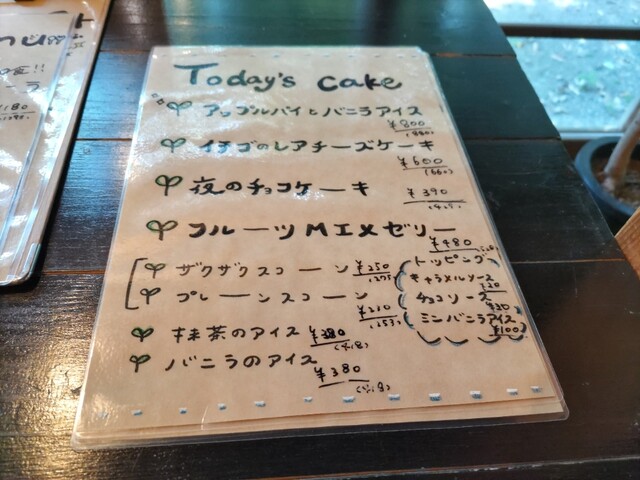 Today's cake
アップルパイとバニラアイス
¥800
(880)
イチゴのレアチーズケーキ
¥600
(660)
夜のチョコケーキ ¥390
フルーツMIXゼリー
¥480
ザクザクスコーン ¥250
(275)
プレーンスコーン
¥210
抹茶のアイス ¥380
(418)
バニラのアイス
¥380
(418)
トッピング
キャラメルソース
チョコソース
¥30
ミニバニラアイス
¥100